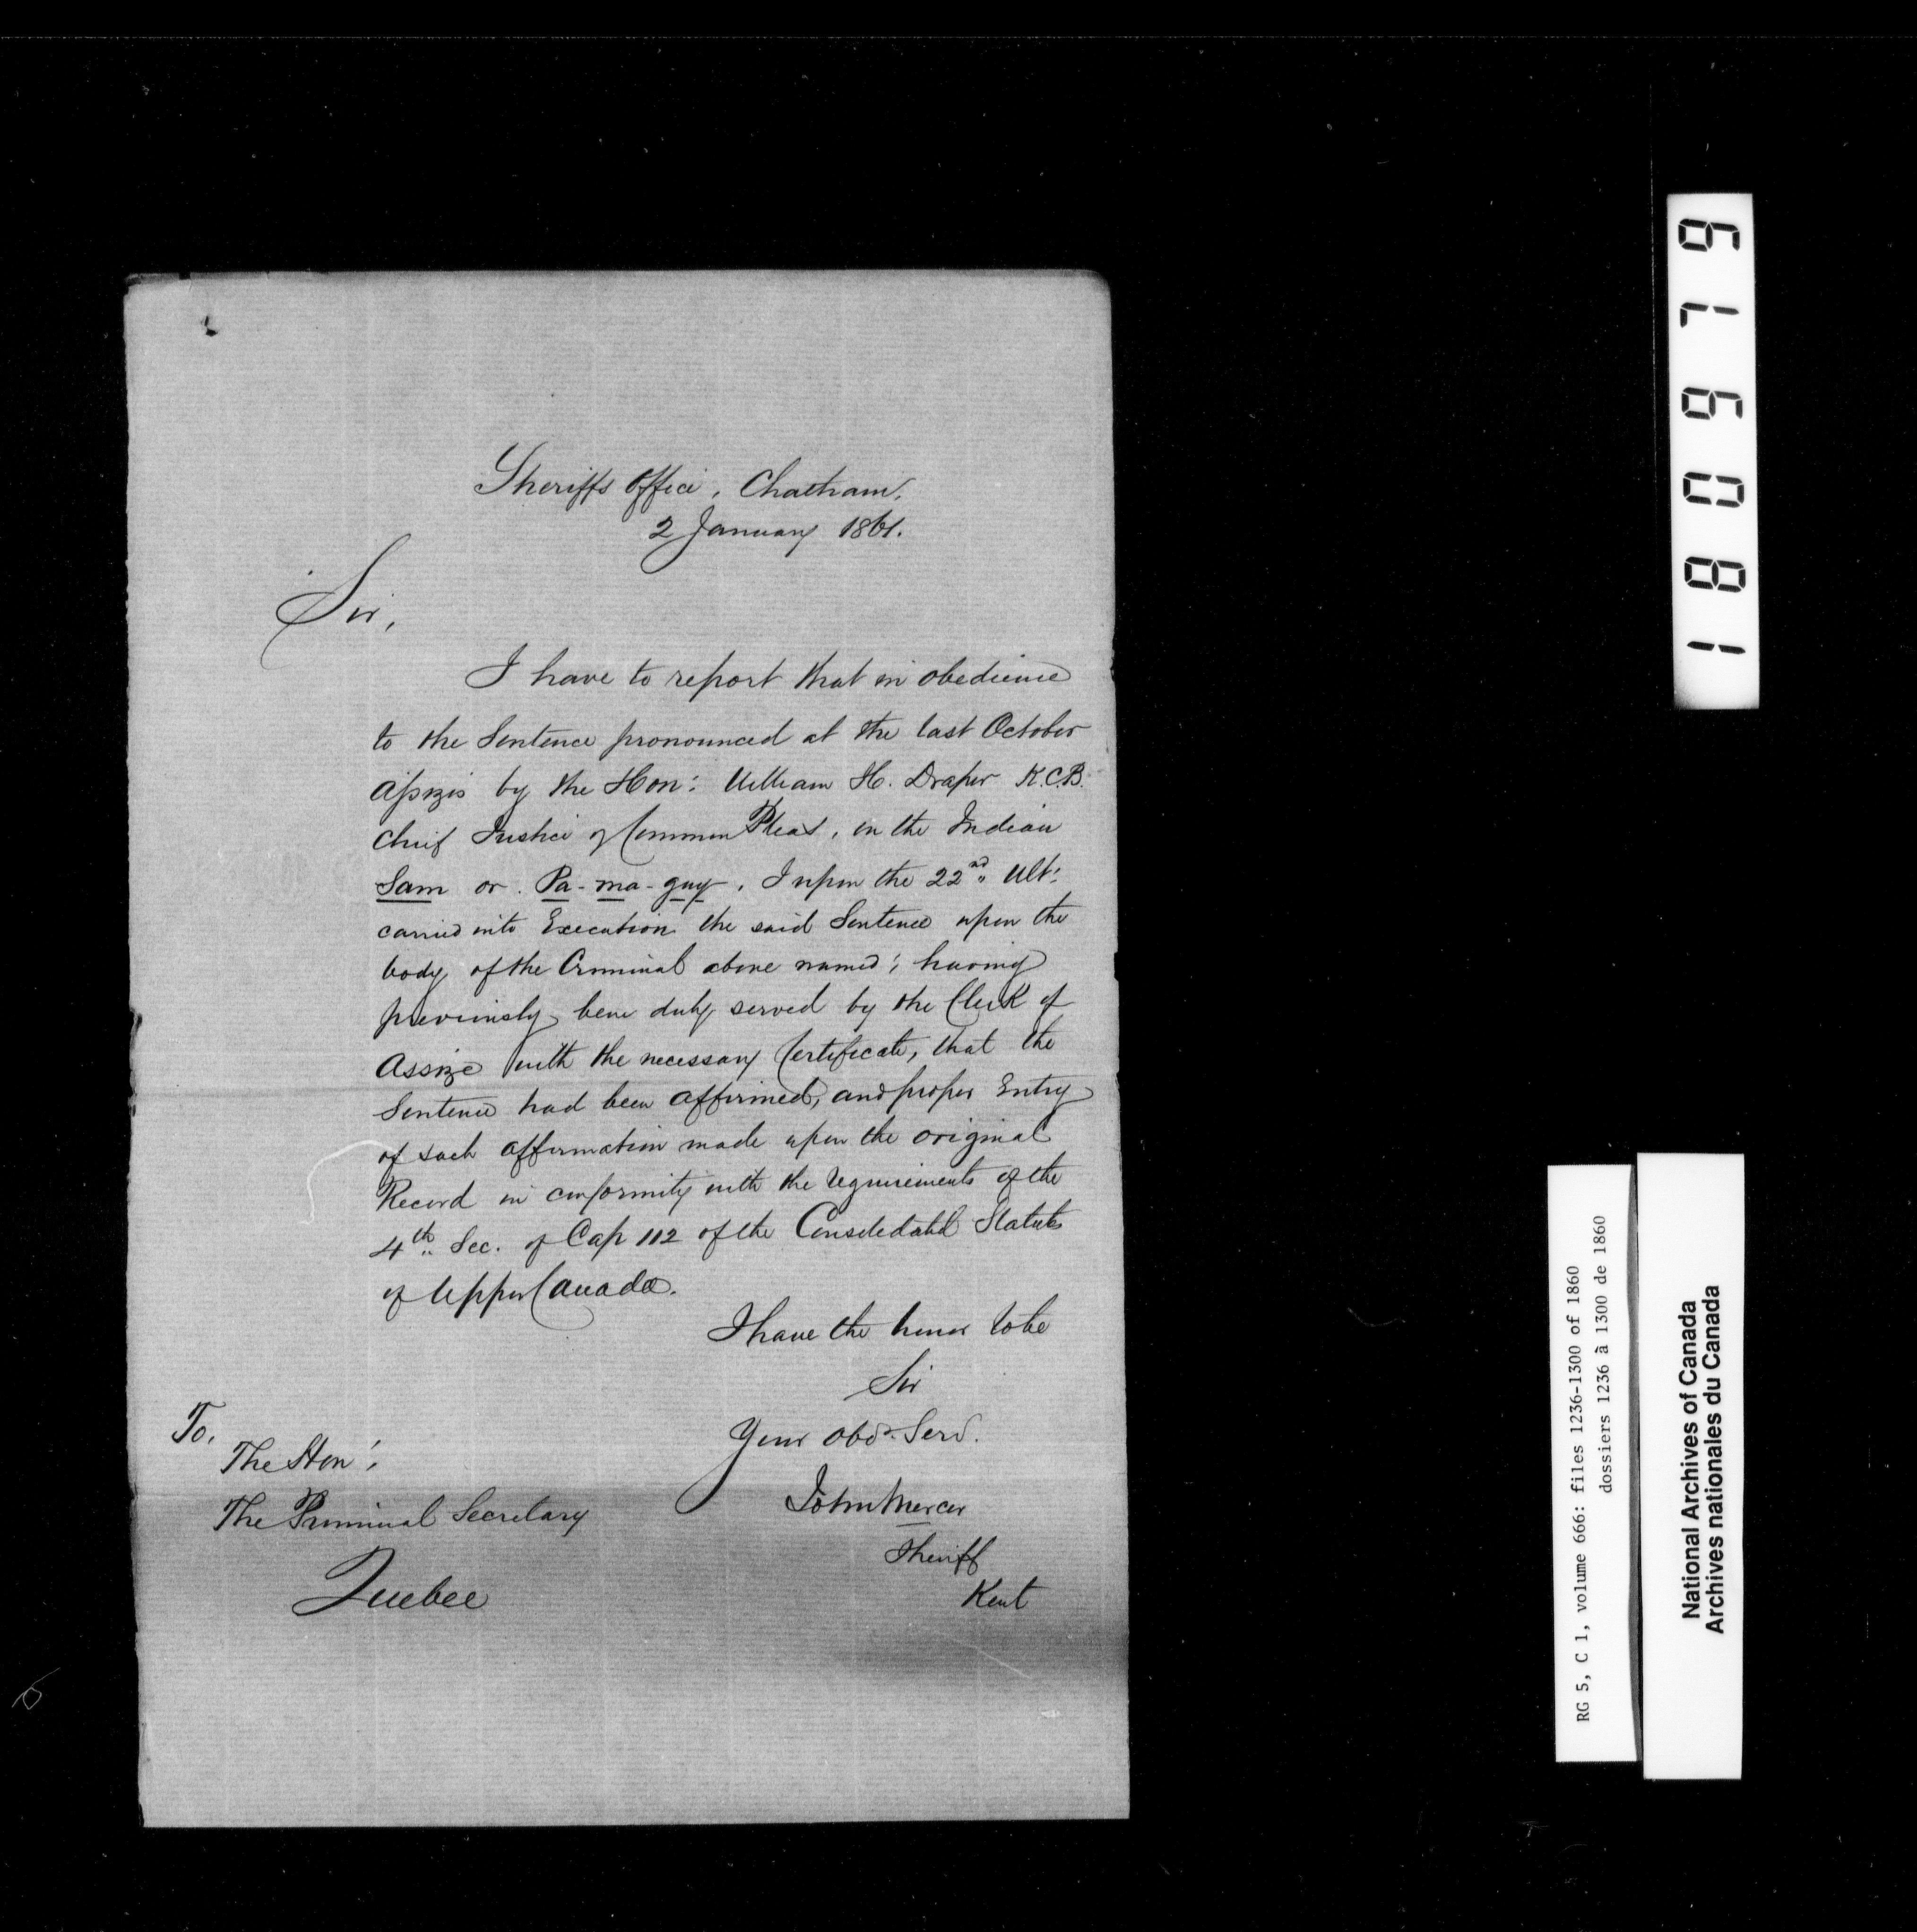 Sheriffs Office, Chatham.
2 January 1861.
Sir,
I have to report that in obedience
to the Sentence pronounced at the last October
Assizes by the Hon: William H. Draper K.C.B.
Chief Justice of Common Pleas, on the Indian
Sam or Pa-ma-guy. I upon the 22nd Ult:
carried into Execution the said Sentence upon the
body of the Criminal above named; having
previously been duly served by the Clerk of
Assize with the necessary Certificate, that the
Sentence had been affirmed, and proper Entry
of such affirmation made upon the original
Record in conformity with the requirements of the
4th Sec. of Cap 112 of the Consolidated Statutes
of Upper Canada.
I have the honor to be
Sir
Your Obdt Servt.
John Mercer
Sheriff
Kent
To,
The Hon:
The Provincial Secretary
Quebec
180979
RG 5, C 1, volume 666: files 1236-1300 of 1860
dossiers 1236 à 1300 de 1860
National Archives of Canada
Archives nationales du Canada